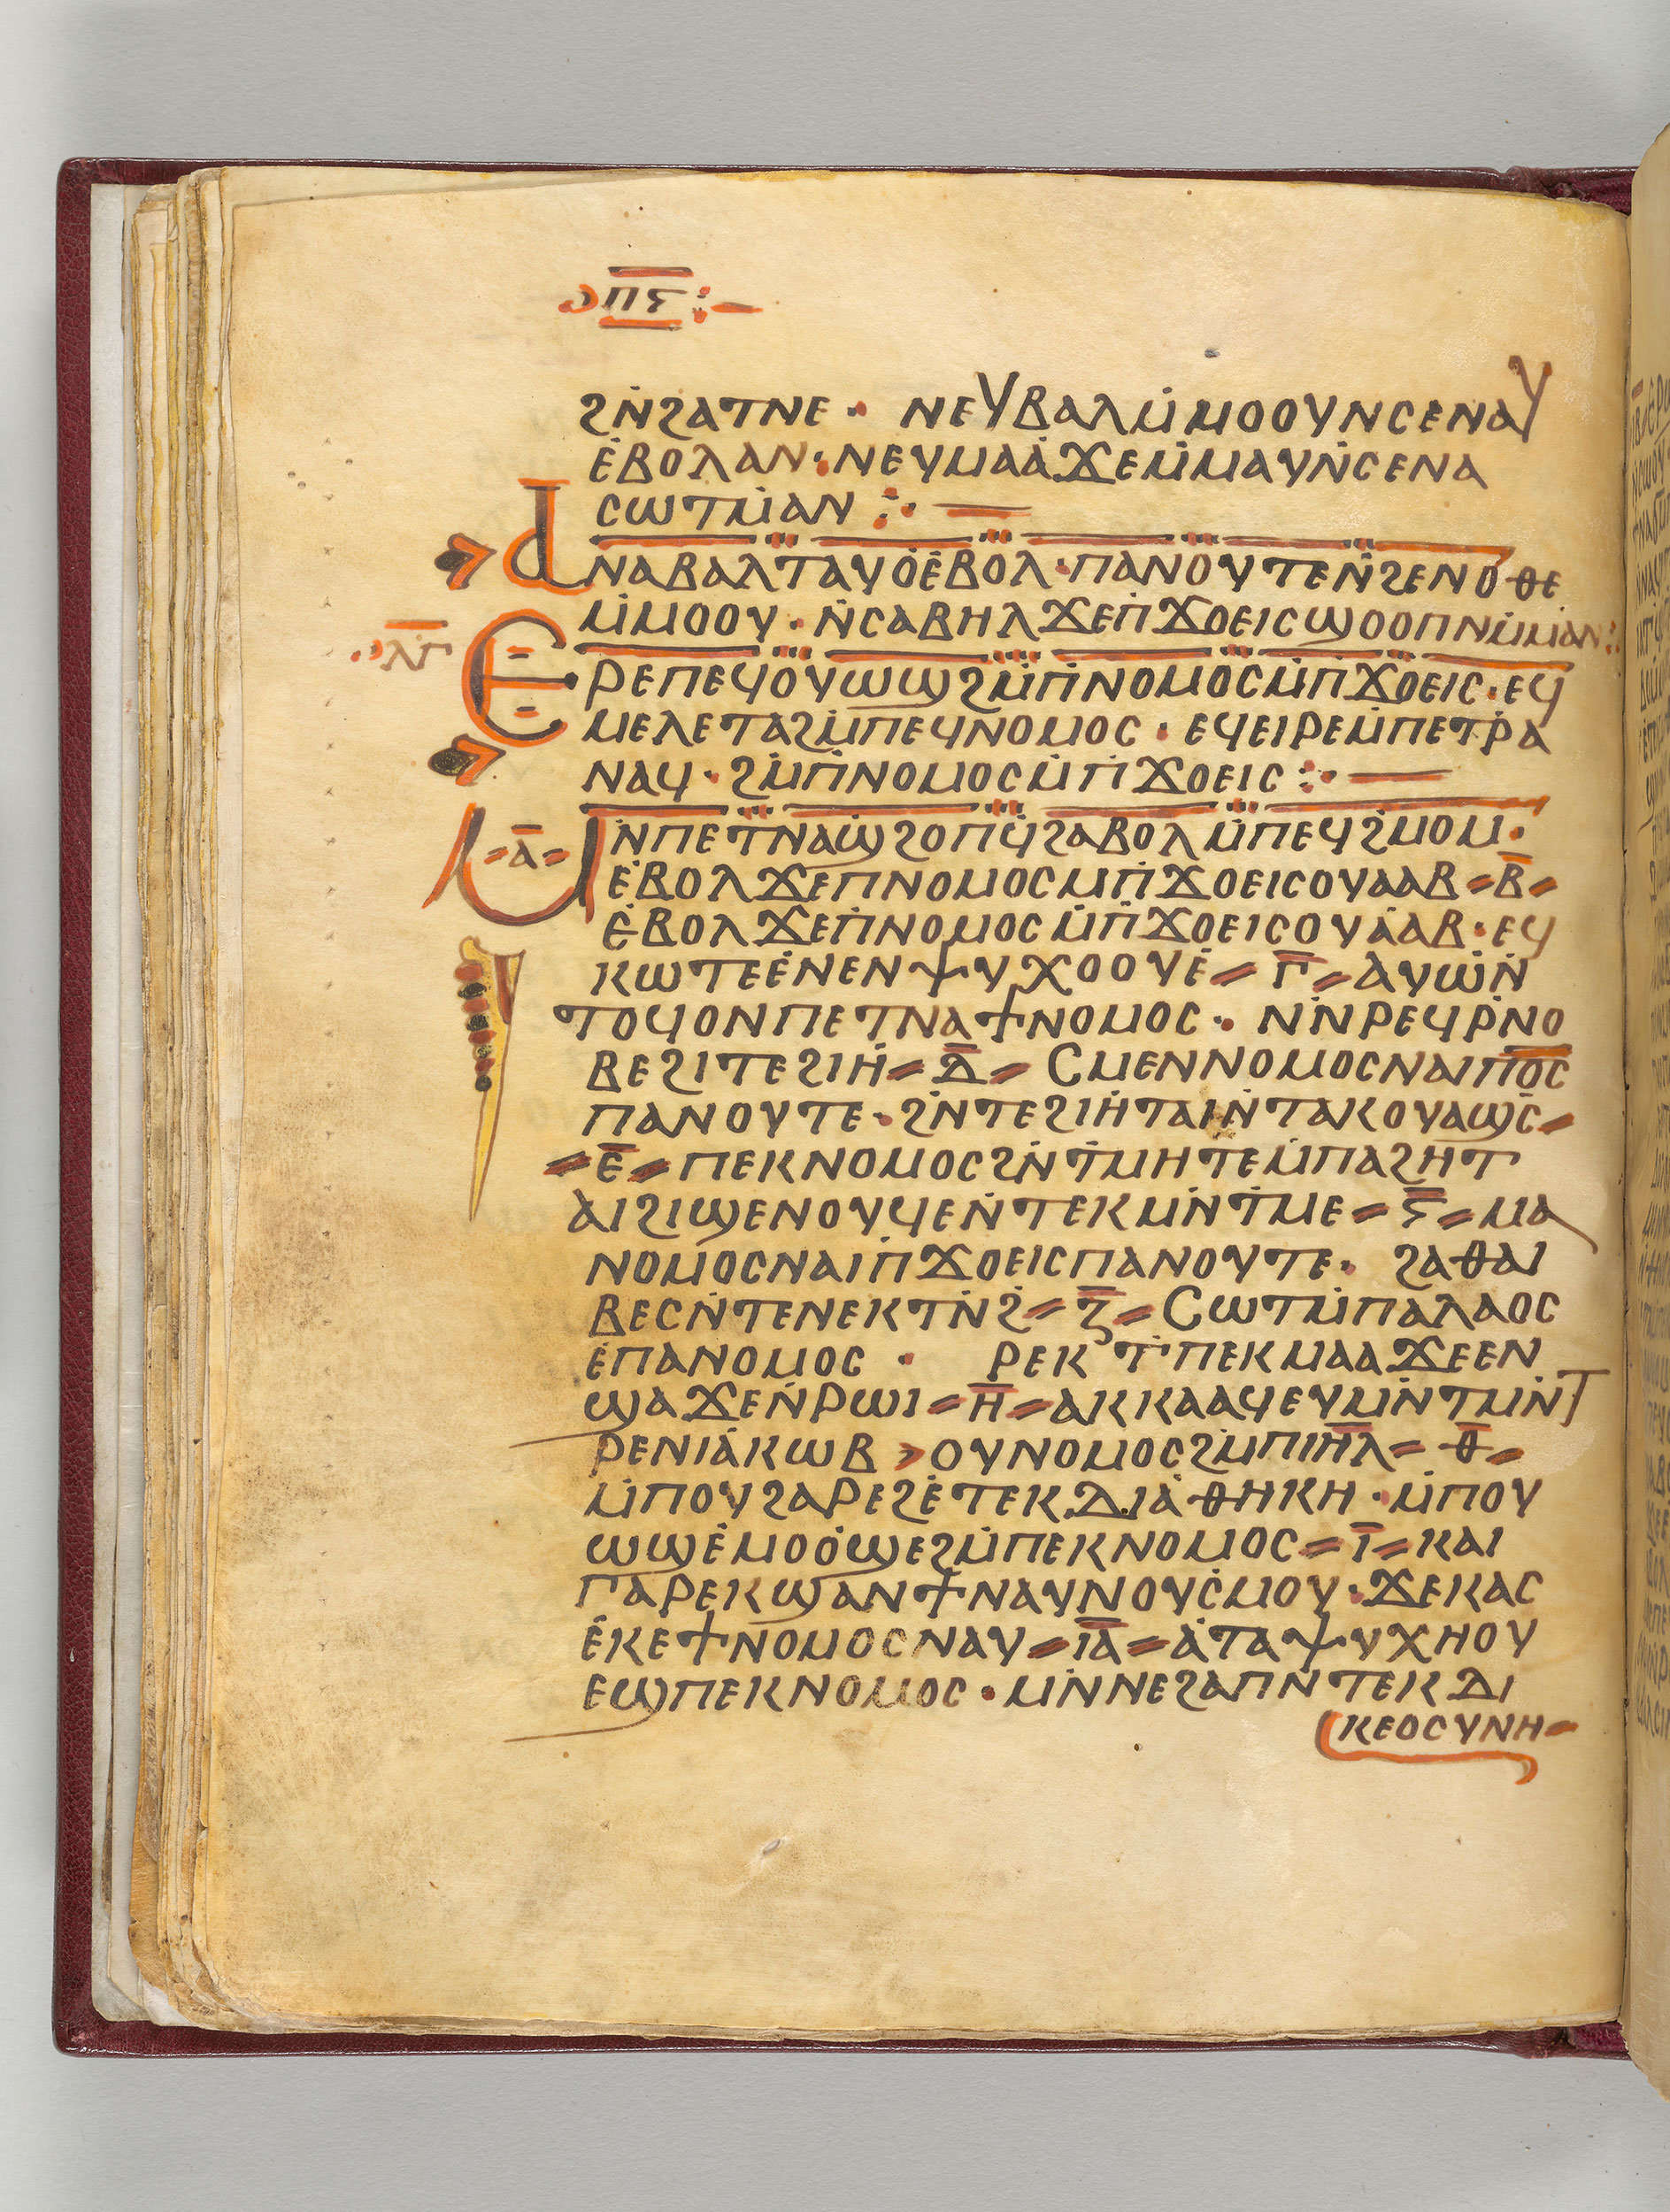 ⲡⲋ
ϩⲛ̇ϩⲁⲧⲛⲉ · ⲛⲉⲩⲃⲁⲗⲙ̇ⲙⲟⲟⲩⲛⲥⲉⲛⲁⲩ
ⲉ̇ⲃⲟⲗⲁⲛ · ⲛⲉⲩⲙⲁⲁ̇ϫⲉⲙ̇ⲙⲁⲩⲛ̇ⲥⲉⲛⲁ
ⲥⲱⲧⲙ̇ⲁⲛ ⁘ —
ⲁⲛⲁⲃⲁⲗⲧⲁⲩⲟ̇ⲉ̇ⲃⲟⲗ · ⲡⲁⲛⲟⲩⲧⲉⲛ̇ϩⲉⲛⲟ̇ⲑⲉ
ⲙ̇ⲙⲟⲟⲩ · ⲛ̇ⲥⲁⲃⲏⲗϫⲉⲡ̇ϫⲟⲉⲓⲥϣⲟⲟⲡⲛⲙ̇ⲙⲁⲛ ⁘
ⲗⲅ
ⲉⲣⲉⲡⲉϥⲟⲩⲱϣϩⲙ̇ⲡ̇ⲛⲟⲙⲟⲥⲙ̇ⲡ̇ϫⲟⲉⲓⲥ · ⲉϥ
ⲙⲉⲗⲉⲧⲁϩⲙ̇ⲡⲉϥⲛⲟⲙⲟⲥ · ⲉϥⲉⲓⲣⲉⲙ̇ⲡⲉⲧⲣ̇ⲁ
ⲛⲁϥ · ϩⲙ̇ⲡ̇ⲛⲟⲙⲟⲥⲙ̇ⲡ̇ϫⲟⲉⲓⲥ ⁘ —
ⲙ-ⲁ̅-ⲛ̇ⲡⲉⲧⲛⲁϣϩⲟⲡϥ̇ϩⲁⲃⲟⲗⲙ̇ⲡⲉϥϩⲙⲟⲙ ·
ⲉ̇ⲃⲟⲗϫⲉⲡⲛⲟⲙⲟⲥⲙⲡ̇ϫⲟⲉⲓⲥⲟⲩⲁⲁⲃ-ⲃ̅-
ⲉ̇ⲃⲟⲗϫⲉⲡ̇ⲛⲟⲙⲟⲥⲙ̇ⲡ̇ϫⲟⲉⲓⲥⲟⲩⲁ̇ⲁⲃ · ⲉϥ
ⲕⲱⲧⲉⲉ̇ⲛⲉⲛⲯⲩⲭⲟⲟⲩⲉ̇-ⲅ̅-ⲁⲩⲱ̇ⲛ̇
ⲧⲟϥⲟⲛⲡⲉⲧⲛⲁϯⲛⲟⲙⲟⲥ · ⲛⲛ̇ⲣⲉϥⲣ̇ⲛⲟ
ⲃⲉϩⲓⲧⲉϩⲓⲏ̇-ⲇ̅-ⲥⲙⲉⲛⲛⲟⲙⲟⲥⲛⲁⲓⲡⲟ̅ⲥ̅
ⲡⲁⲛⲟⲩⲧⲉ · ϩⲛ̇ⲧⲉϩⲓⲏ̇ⲧⲁⲓⲛ̇ⲧⲁⲕⲟⲩⲁϣⲥ̇-
-ⲉ̅-ⲡⲉⲕⲛⲟⲙⲟⲥϩⲛ̇ⲧ̇ⲙⲏⲧⲉⲙ̇ⲡⲁϩⲏⲧ
ⲁⲓϩⲓϣⲉⲛⲟⲩϥⲉⲛ̇ⲧⲉⲕⲙⲛ̇ⲧ̇ⲙⲉ-ⲋ̅-ⲙⲁ
ⲛⲟⲙⲟⲥⲛⲁⲓⲡ̇ϫⲟⲉⲓⲥⲡⲁⲛⲟⲩⲧⲉ · ϩⲁⲑⲁⲓ
ⲃⲉⲥⲛ̇ⲧⲉⲛⲉⲕⲧⲛ̇ϩ̇-ⲍ̅-ⲥⲱⲧⲙ̇ⲡⲁⲗⲁⲟⲥ
ⲉ̇ⲡⲁⲛⲟⲙⲟⲥ · ⲣⲉⲕⲧ̇ⲡⲉⲕⲙⲁⲁϫⲉⲉⲛ
ϣⲁϫⲉⲛ̇ⲣⲱⲓ-ⲏ̅-ⲁⲕⲕⲁⲁϥⲉⲩⲙⲛ̇ⲧⲙⲛ̇ⲧ
ⲣⲉⲛⲓⲁ̇ⲕⲱⲃ > ⲟⲩⲛⲟⲙⲟⲥϩⲙ̇ⲡⲓⲏ̅ⲗ̅-ⲑ̅-
ⲙ̇ⲡⲟⲩϩⲁⲣⲉϩⲉ̇ⲧⲉⲕⲇⲓⲁ̇ⲑⲏⲕⲏ · ⲙ̇ⲡⲟⲩ
ⲱϣⲉ̇ⲙⲟⲟ̇ϣⲉϩⲙ̇ⲡⲉⲕⲛⲟⲙⲟⲥ-ⲓ̅-ⲕⲁⲓ
ⲡⲁⲣⲉⲕϣⲁⲛϯⲛⲁⲩⲛⲟⲩⲥ̇ⲙⲟⲩ · ϫⲉⲕⲁⲥ
ⲉ̇ⲕⲉϯⲛⲟⲙⲟⲥⲛⲁⲩ-ⲓ̅ⲁ̅-ⲁ̇ⲧⲁⲯⲩⲭⲏⲟⲩ
ⲉϣⲡⲉⲕⲛⲟⲙⲟⲥ · ⲙⲛ̇ⲛⲉϩⲁⲡⲛⲧⲉⲕⲇⲓ
ⲕⲉⲟⲥⲩⲛⲏ-